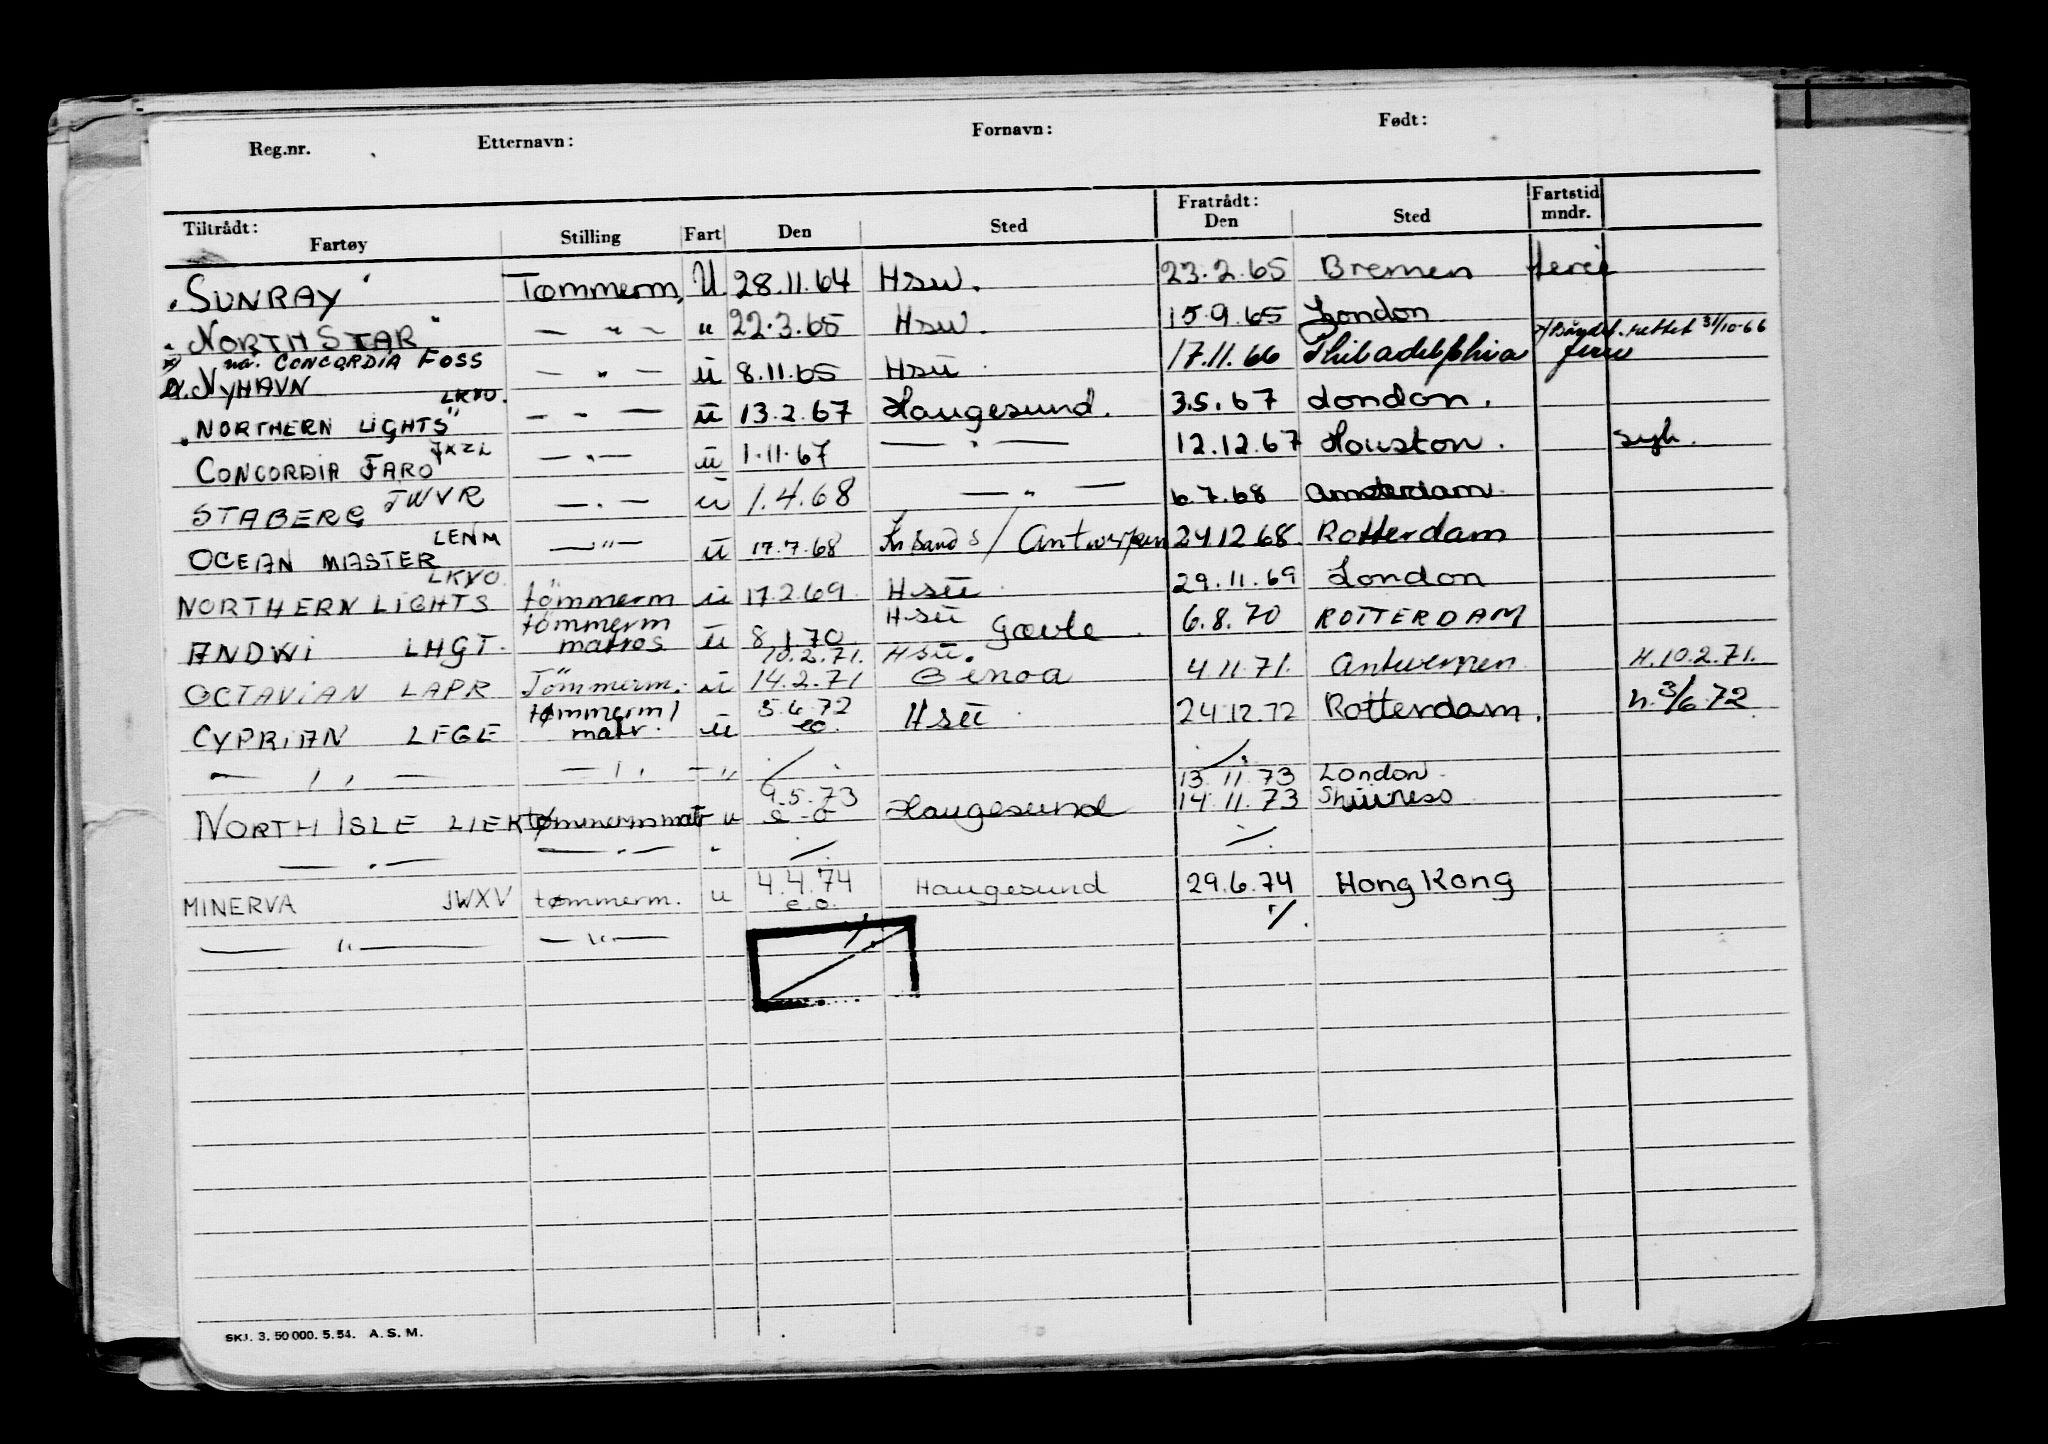 Reg.nr. Etternavn: Fornavn: Født:
Tiltrådt: Fratrådt: Fartstid
Fartøy Stilling Fart Den Sted Den Sted mndr.
"SUNRAY" Tømmerm. U 28.11.64 Hsu. 23.2.65 Bremen ferie
"NORTH STAR" — " — " 22.3.65 Hsu. 15.9.65 London
x) nå. CONCORDIA FOSS x) rettet 31/10-66
NYHAVN — " — ü 8.11.65 Hsü. 17.11.66 Philadelphia ferie
"NORTHERN LIGHTS" LKVO. — " — ü 13.2.67 Haugesund. 3.5.67 London.
CONCORDIA FARO JXZL — " — ü 1.11.67 — " — 12.12.67 Houston. syk.
STABERG JWVR — " — ü 1.4.68 — " — 6.7.68 Amsterdam.
OCEAN MASTER LENM — " — ü 17.7.68 Kr.sand S / Antwerpen 24.12.68. Rotterdam
NORTHERN LIGHTS LKVO. tømmerm ü 17.2.69. Hsü. 29.11.69 London
ANDWI LHGT. tømmerm matros ü 8.1.70. Hsü Gævle. 6.8.70 ROTTERDAM
OCTAVIAN LAPR Tömmerm. ü 10.2.71. 14.2.71 Hsü. Genoa 4.11.71. Antwerpen H.10.2.71.
CYPRIAN LEGE tømmerm/ matr. ü 5.6.72 eo. Hsü. 24.12.72 Rotterdam. h. 3/6.72
— " — — " — — " ./. ./.
NORTH ISLE LIEK tømmermmatr u 9.5.73 e-o Haugesund 13.11.73 London.
14.11.73
— " — — " — " ./. ./.
MINERVA JWXV tømmerm. u 4.4.74 e.o. Haugesund 29.6.74 Hong Kong
— " — — " — ./. ./.
SKJ. 3. 50 000. 5. 54. A. S. M.